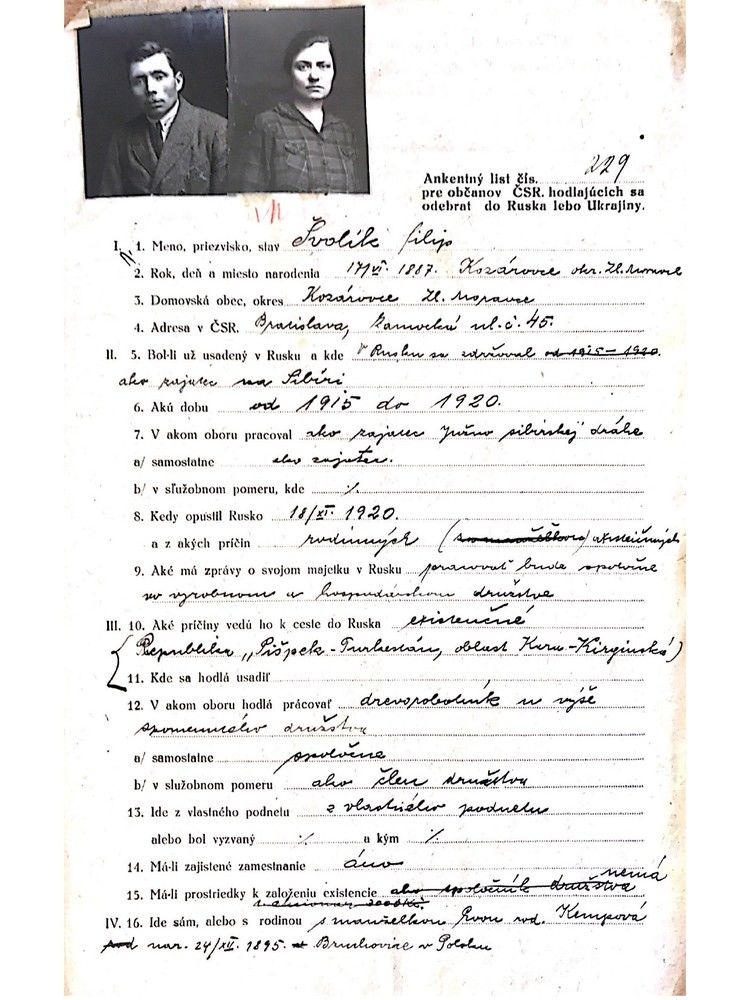 229
Anketný list čís.
pre občanov ČSR. hodlajúcich sa
odebrat do Ruska lebo Ukrajiny.
VII
I. 1. Meno, priezvisko, stav Švolík filip
2. Rok, deň a miesto narodenia 17/VI. 1887. Kozárovce okr. Zl. Moravce
3. Domovská obec, okres Kozárovce Zl. Moravce
4. Adresa v ČSR. Bratislava, Zamocká ul. č. 45.
II. 5. Bol-li už usadený v Rusku a kde v Rusku sa zdržoval od 1915 – 1920.
ako zajatec na Sibíri
6. Akú dobu od 1915 do 1920.
7. V akom oboru pracoval ako zajatec južno sibirskej dráhe
a/ samostatne ako zajatec.
b/ v služobnom pomeru, kde ·/.
8. Kedy opustil Rusko 18/XI. 1920.
a z akých príčin rodinných
9. Aké má zprávy o svojom majetku v Rusku pracovať bude spoločne
vo vyrobnom a hospodárskom družstve
III. 10. Aké príčiny vedú ho k ceste do Ruska existenčné
Republika „Pišpek - Turkestán, oblast Kara-Kirginská)
11. Kde sa hodlá usadiť
12. V akom oboru hodlá prácovať drevorobotník u výše
spomenutého družstva
a/ samostatne spoločne
b/ v služobnom pomeru ako člen družstva
13. Ide z vlastného podnetu z vlastného podnetu
alebo bol vyzvaný ·/. a kým ·/.
14. Má-li zajistené zamestnanie áno
nemá
15. Má-li prostriedky k založeniu existencie ako spoločník družstva
IV. 16. Ide sám, alebo s rodinou s manželkou Evou rod. Kempová
nar. 24/XII. 1895. Bruchovice v Polsku